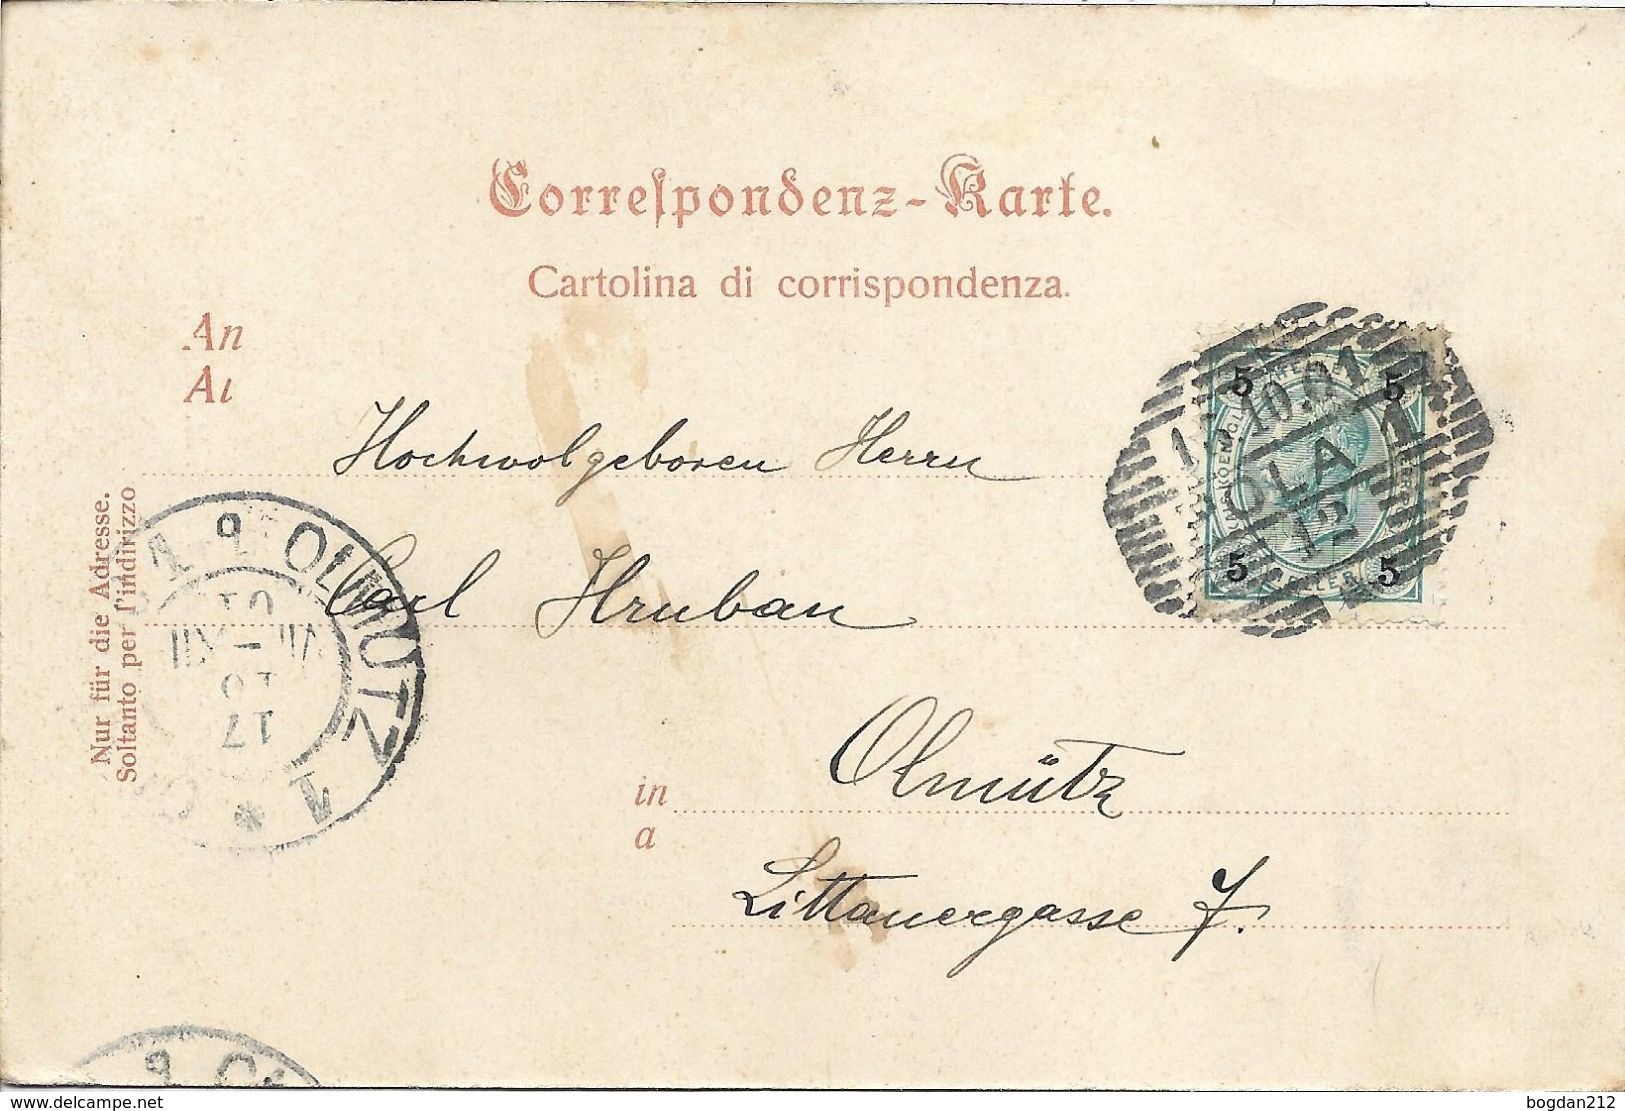 Correspondenz-Karte.
Cartolina di corrispondenza.
An
Al
Hochwolgeboren Herrn
Carl Hruban
in
a
Olmütz
Littauergasse 7.
Nur für die Adresse.
Soltanto per l'indirizzo
5 5
10.01
OLA
12
5 HELLER 5
1 * OLMÜTZ
17
10
01
www.delcampe.net
bogdan212